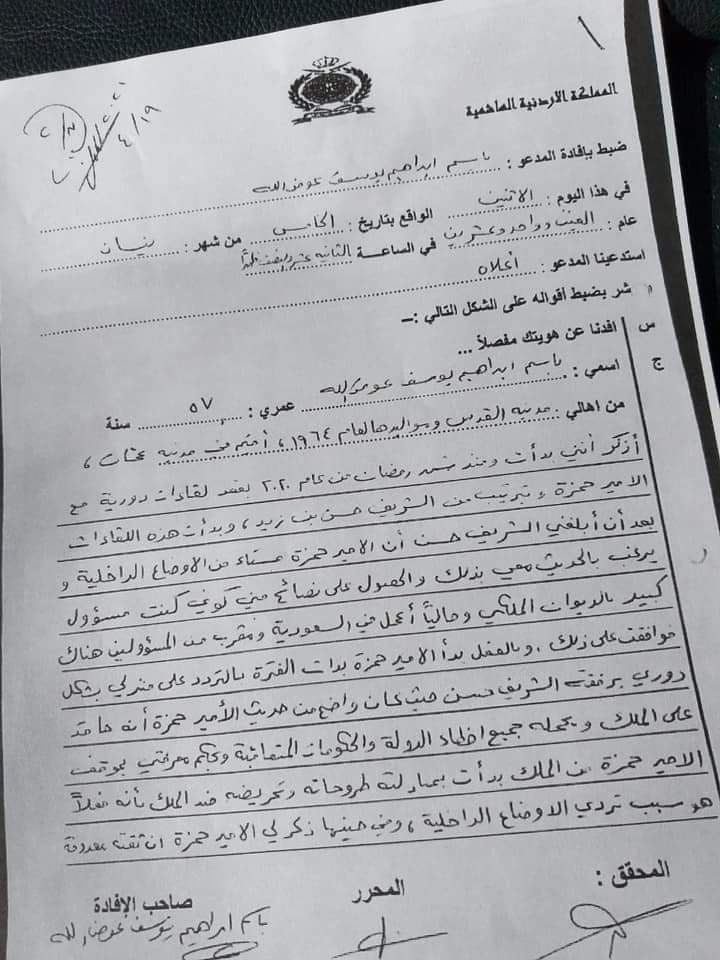 ١
٢٠٢١
٤/١٩
المملكة الاردنية الهاشمية
ضبط بإفادة المدعو : باسم ابراهيم يوسف عوض الله
في هذا اليوم : الاثنين الواقع بتاريخ : الخامس من شهر : نيسان
عام : الفين وواحد وعشرين في الساعة الثانيه عشر ونصف ظهراً
استدعينا المدعو : أعلاه
شر بضبط أقواله على الشكل التالي :–
س افدنا عن هويتك مفصلاً ...
ج اسمي : باسم ابراهيم يوسف عوض الله عمري : ٥٧ سنة
من اهالي : مدينه القدس ومواليدها لعام ١٩٦٤ ، أقيم في مدينه عمان ،
أذكر أنني بدأت ومنذ شهر رمضان من عام ٢٠٢٠ بعقد لقاءات دورية مع
الامير حمزة بترتيب من الشريف حسن بن زيد ، وبدأت هذه اللقاءات
بعد أن أبلغني الشريف حسن أن الامير حمزة مستاء من الاوضاع الداخلية و
يرغب بالحديث معي بذلك والحصول على نصائح مني كوني كنت مسؤول
كبير بالديوان الملكي وحالياً أعمل في السعودية ومقرب من المسؤولين هناك
فوافقت على ذلك . وبالفعل بدأ الامير حمزة بذات الفترة بالتردد على منزلي بشكل
دوري برفقة الشريف حسن حيث كان واضح من حديث الأمير حمزة أنه حاقد
على الملك و يحمله جميع اخطاء الدولة والحكومات المتعاقبة وبحكم معرفتي بموقف
الامير حمزة من الملك بدأت بمبادلته طروحاته وتحريضه ضد الملك بأنه فعلاً
هو سبب تردي الاوضاع الداخلية ، وفي حينها ذكر لي الامير حمزة ان ثقته معدومة
المحقق : المحرر صاحب الإفادة
باسم ابراهيم يوسف عوض الله